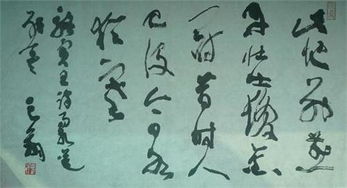 此地别燕
丹壮士发冲
冠昔时人
已没今日水
犹寒
骆宾王诗易水送